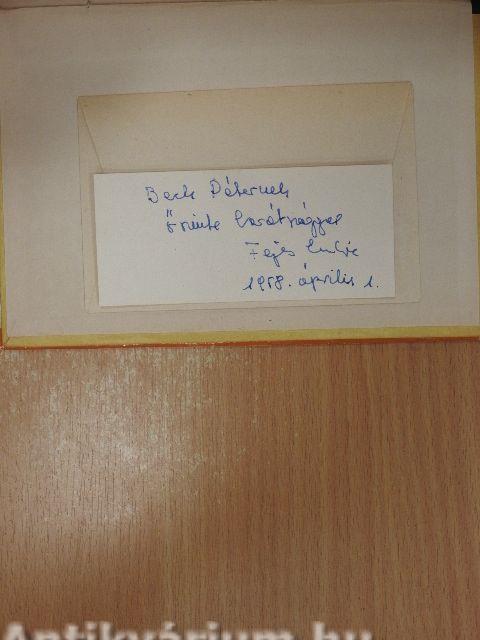 Beck Péternek
őszinte barátsággal
Fejes Endre
1958. április 1.
Antikvárium.hu